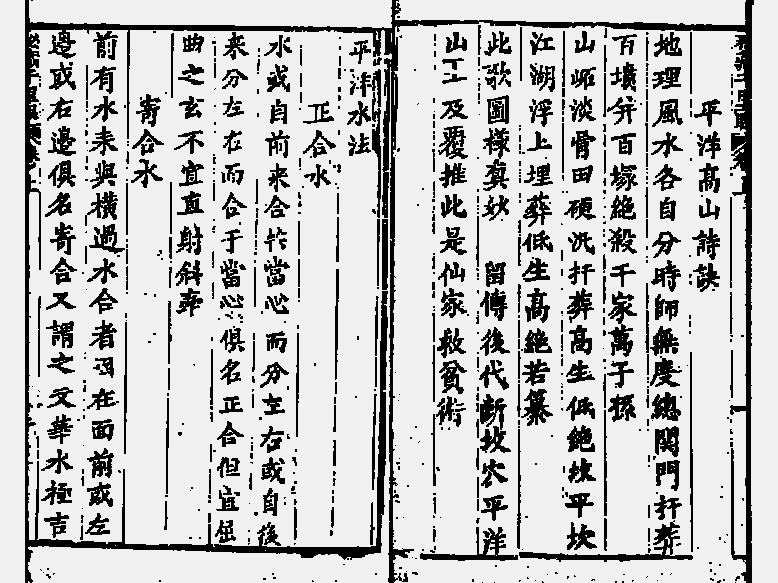 平洋高山詩訣
地理風水各自分時師無度總関門扞葬
百墳并百塚絕殺千家萬子孫
山峁淡骨田硬洗扞葬高生低絕坎平坎
江湖浮上埋葬低生高絕若纂
此歌圖樣真妙 留傳後代斷坟穴平洋
山工及覆推此是仙家救貧術
平洋水法
正合水
水或自前來合於當心而分左右或自後
來分左右而合于當心俱名正合但宜屈
曲之玄不宜直射斜牽
寄合水
前有水未與橫過水合者 在面前或左
邊或右邊俱名寄合又謂之文華水極吉